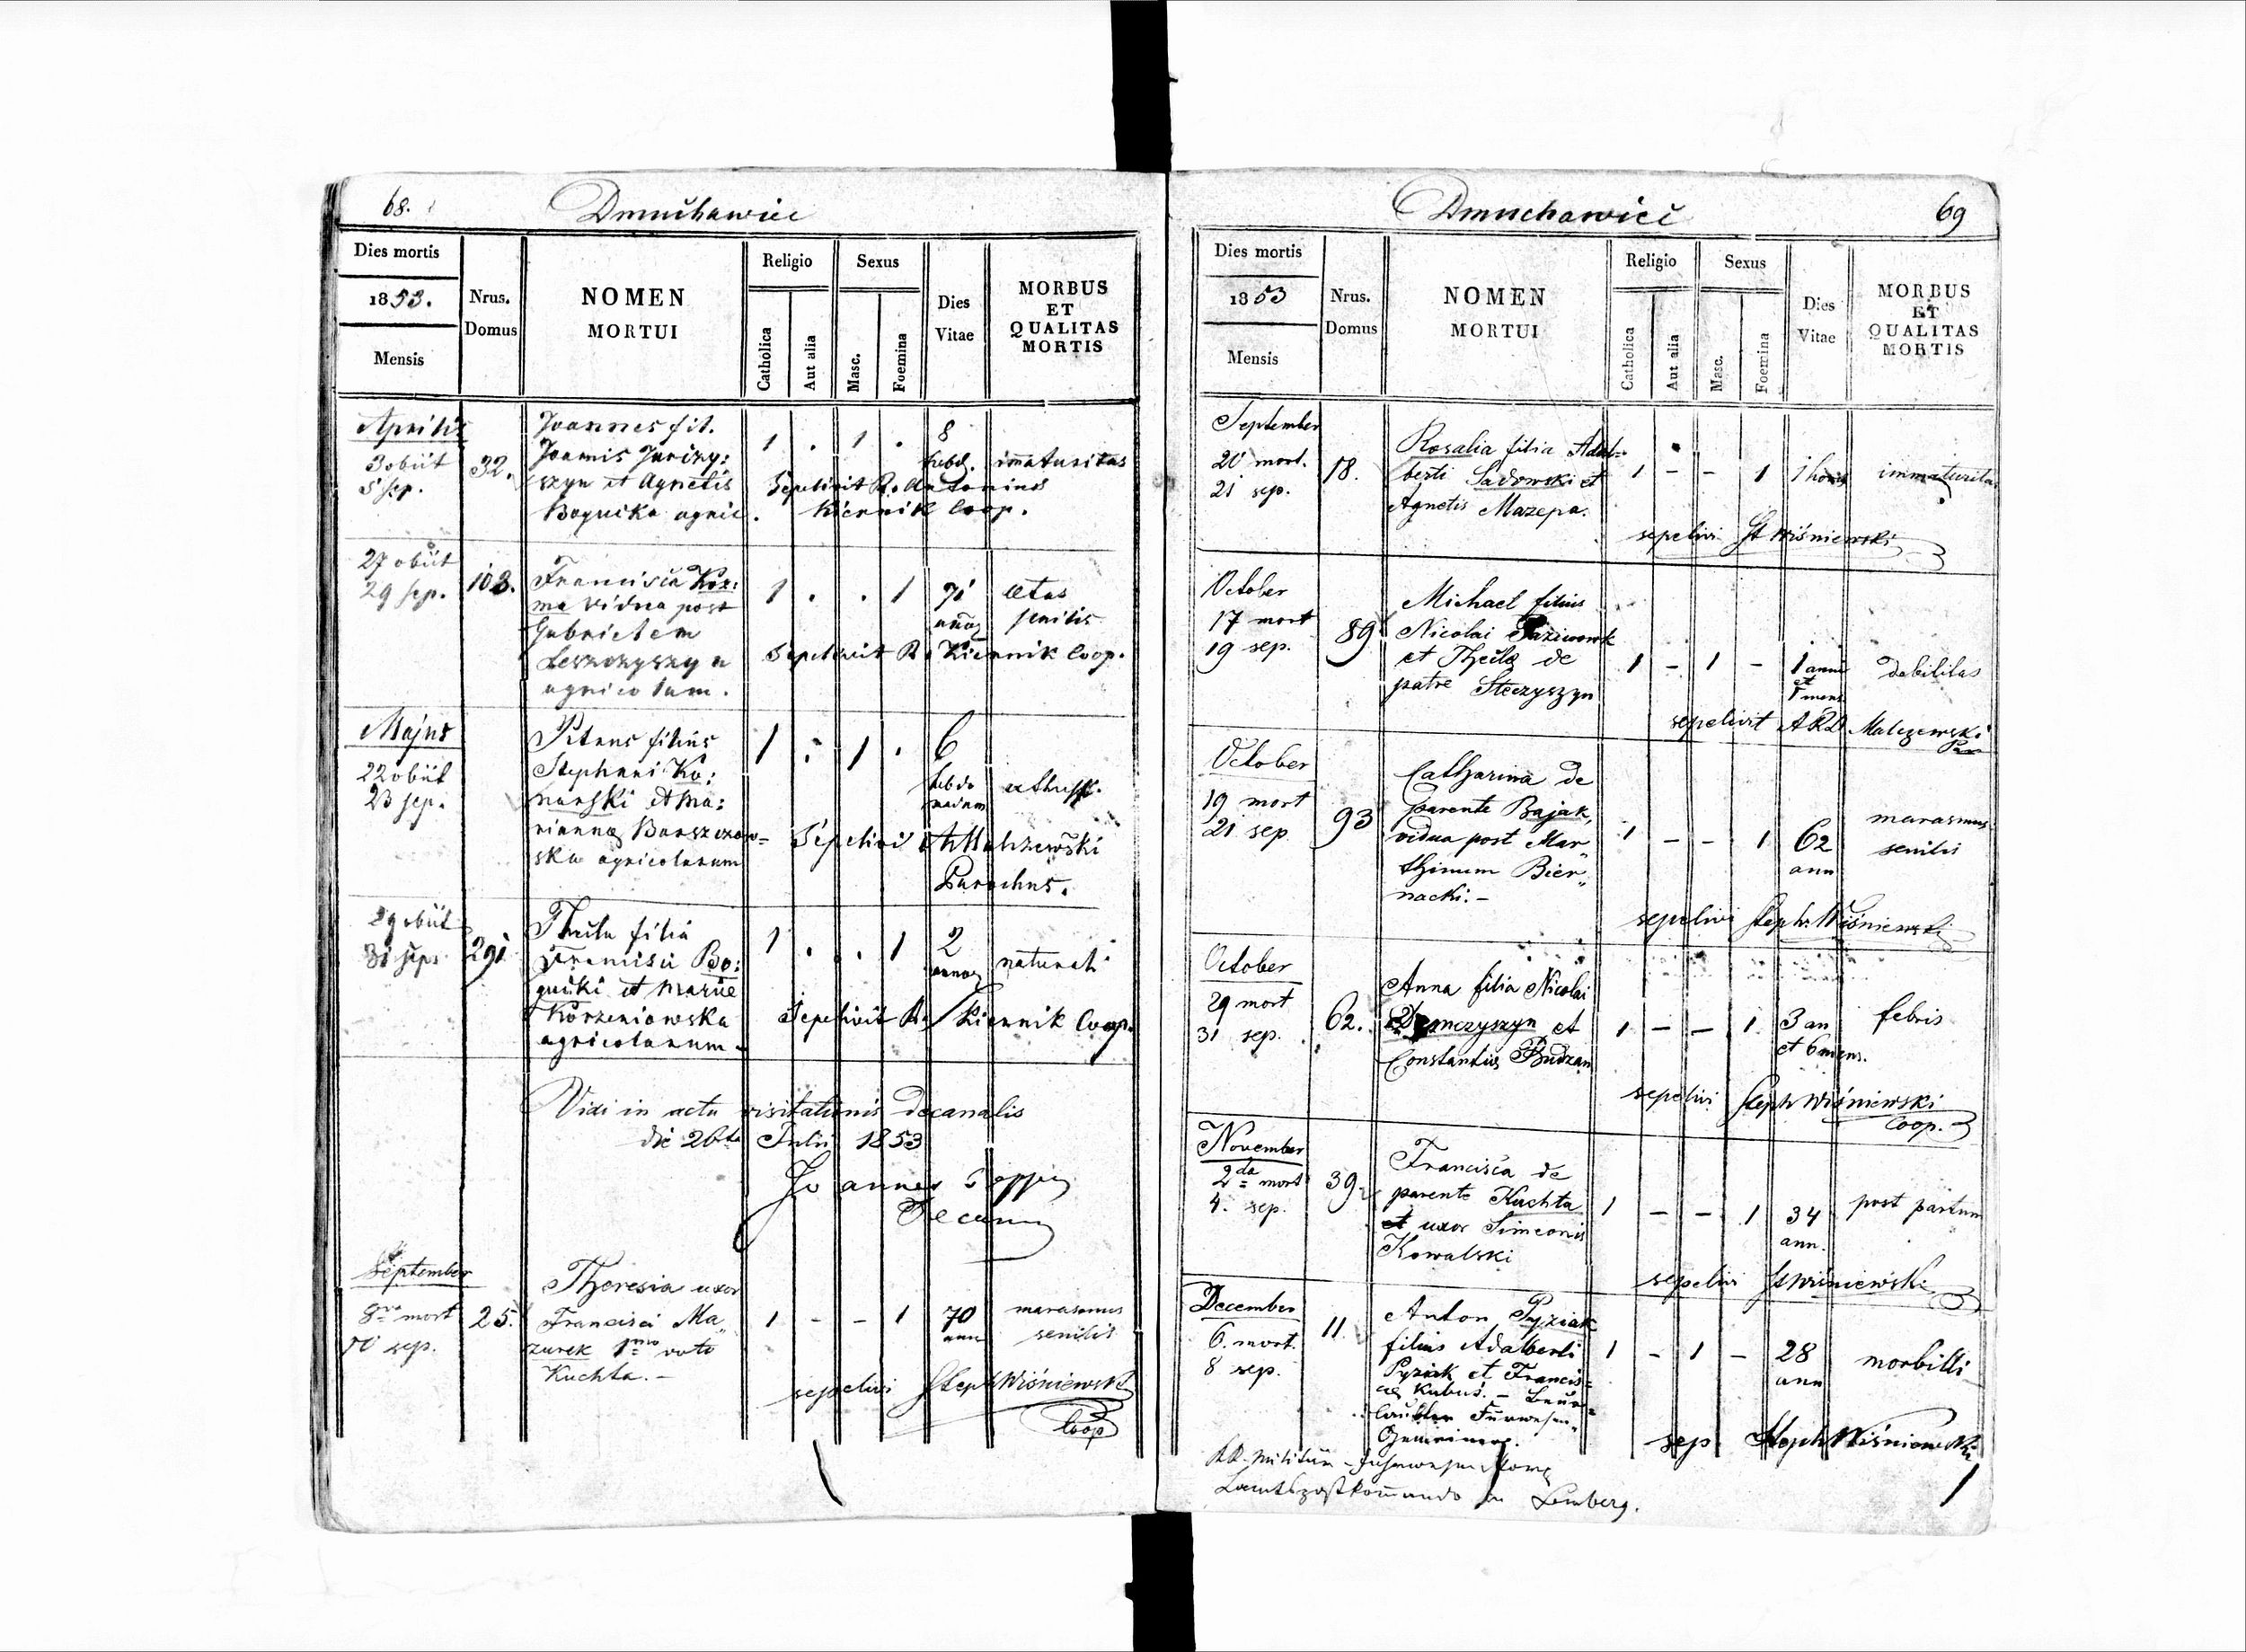 68.
Dmuchawiec
Dies mortis
1853.
Mensis
Nrus.
Domus
NOMEN
MORTUI
Religio
Catholica
Aut alia
Sexus
Masc.
Foemina
Dies
Vitae
MORBUS
ET
QUALITAS
MORTIS
Aprilis
3 obiit
5 sep.
32.
Joannes fil.
Joannis Juriczy:
szyn et Agnetis
Boguika agric.
1 . 1 .
8
hebd.
immaturitas
Sepelivit R. Antoninus
Kiernik Coop.
27 obiit
29 sep.
103.
Francisca Koz:
ma vidua post
Gabrielem
Leszczyszyn
agricolam.
1 . . 1
71
annor
aetas
senilis
Sepelivit R. Kiernik Coop.
Majus
22 obiit
23 sep.
Petrus filius
Stephani Ko:
narski et Ma:
rianna Barszczow=
ska agricolarum
1 . 1 .
6
hebdo
madum
Sepelivi A Malczewski
Parochus.
29 obiit
31 sep.
291
Thecla filia
Francisci Bo:
guiki et Mariae
Korzeniowska
agricolarum
1 . . 1
2
annor
naturali
Sepelivit R. Kiernik Coop.
Vidi in actu visitationis Decanalis
die 26ta Julii 1853
Joannes
Decanus
September
8va mort
10 sep.
25.
Theresia uxor
Francisci Ma„
zurek 1mo voto
Kuchta. –
1 - - 1
70
ann
marasmus
senilis
sepelivi Steph Wiśniewski
Coop
Dmuchawiec
69
Dies mortis
1853
Mensis
Nrus.
Domus
NOMEN
MORTUI
Religio
Catholica
Aut alia
Sexus
Masc.
Foemina
Dies
Vitae
MORBUS
ET
QUALITAS
MORTIS
September
20 mort.
21 sep.
18.
Rosalia filia Adal=
berti Sadowski et
Agnetis Mazepa.
1 - - 1
1 hora
immaturitas
sepelivi St Wiśniewski
October
17 mort
19 sep.
89
Michael filius
Nicolai
et Thecla de
patre Steczyszyn
1 - 1 -
1 anni
et
1 mens
debilitas
sepelivit ARD Malczewski
Par
October
19 mort
21 sep.
93
Catharina de
parente Bajak,
vidua post Mar„
thinum Bier„
nacki. –
1 - - 1
62
ann
marasmus
senilis
sepelivi Steph. Wiśniewski
October
29 mort
31 sep.
62.
Anna filia Nicolai
Demczyszyn et
Constantia Budzan
1 - - 1
3 an
et 6 mens.
febris
sepelivi Steph Wiśniewski
Coop.
November
2da mort
4. sep.
39.
Francisca de
parente Kuchta
et uxor Simeonis
Kowalski
1 - - 1
34
ann.
post partum
sepelivi St Wiśniewski
December
6. mort.
8 sep.
11.
Anton Pyziak
filius Adalberti
Pyziak et Francis=
cae Kubus. – Beur=
laubter Furwesen„
Gemeiner.
1 - 1 -
28
ann
morbilli
sep. Steph Wiśniewski
KK. Militär-Fuhrwesens Korps
Landespostkommando in Lemberg.